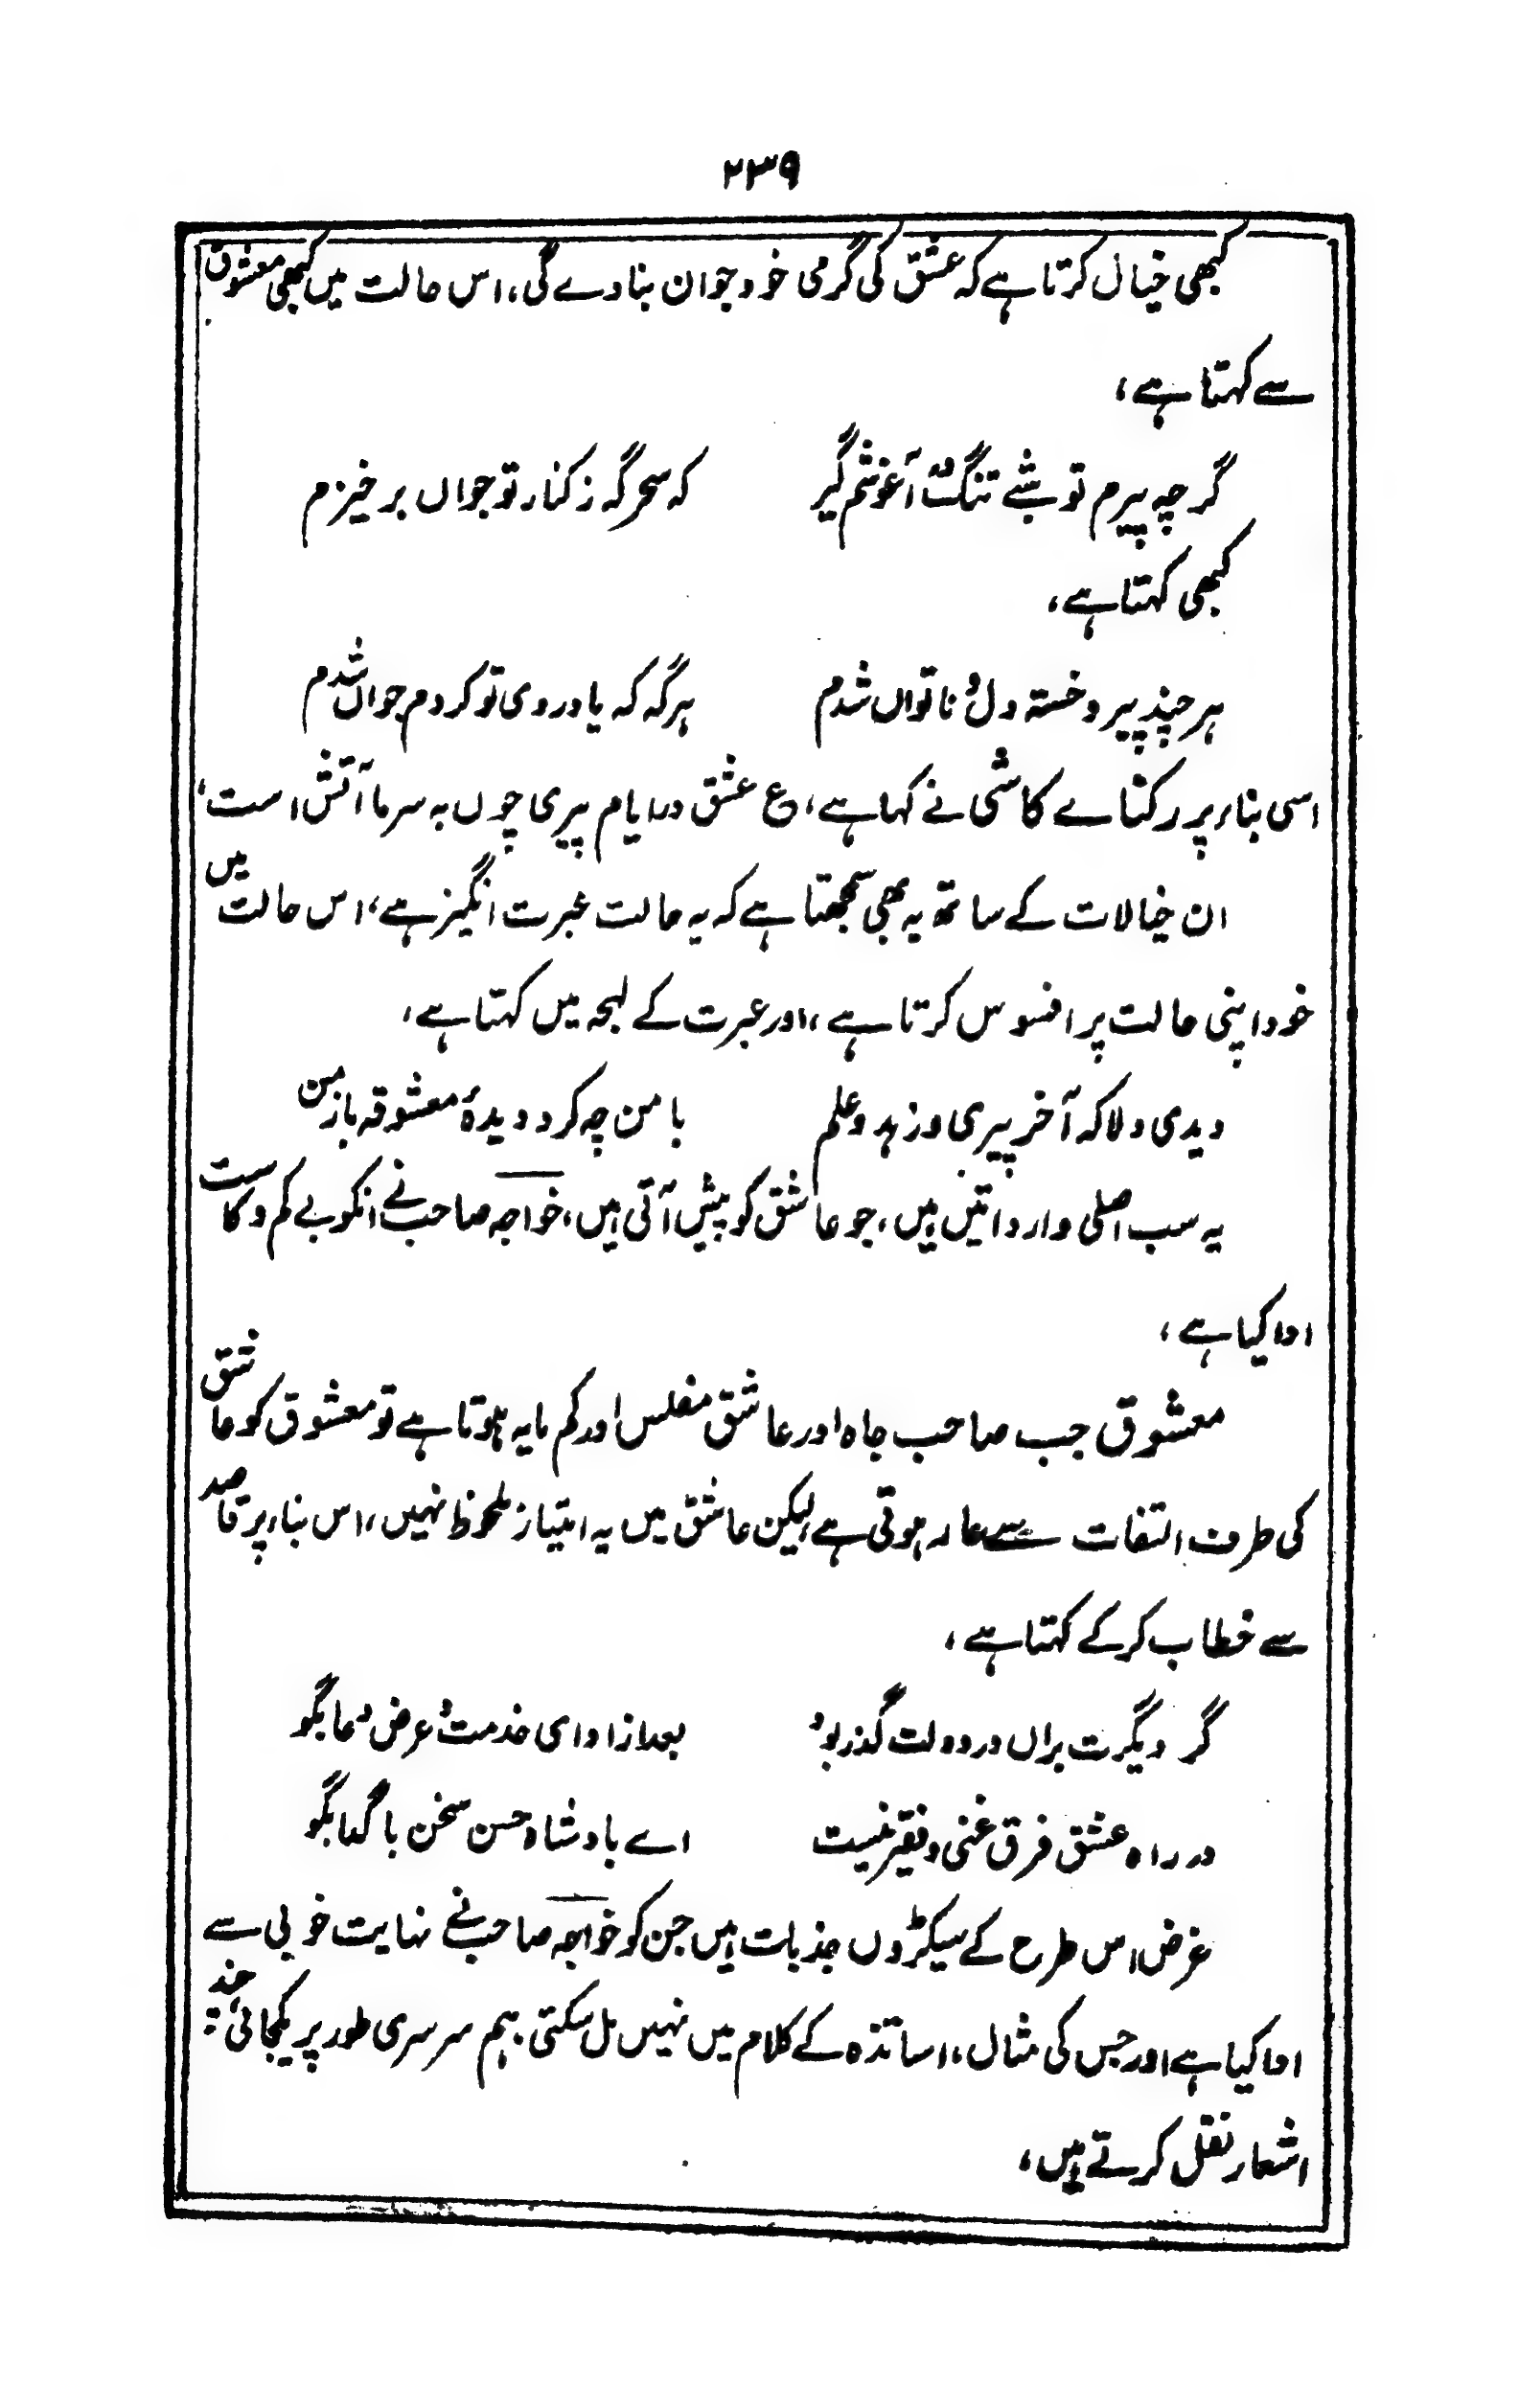 ۲۳۹
کبھی خیال کرتا ہے کہ عشق کی گرمی خود جوان بنا دے گی، اس حالت میں کبھی معشوق
سے کہتا ہے،
گرچہ پیرم تو شبے تنگ در آغوشم گیر کہ سحر گہ ز کنار تو جواں بر خیزم
کبھی کہتا ہے،
ہر چند پیر و خستہ دل و ناتواں شدم ہر گہ کہ یاد روی تو کردم جواں شدم
اسی بناء پر رکنائے کاشی نے کہا ہے، ع عشق در ایام پیری چوں بہ سرما آتش است،
ان خیالات کے ساتھ یہ بھی سمجھتا ہے کہ یہ حالت عبرت انگیز ہے، اس حالت میں
خود اپنی حالت پر افسوس کرتا ہے، اور عبرت کے لہجہ میں کہتا ہے،
دیدی دلا کہ آخر پیری و زہد و علم با من چہ کرد دیدۂ معشوقہ باز من
یہ سب اصلی وارداتیں ہیں، جو عاشق کو پیش آتی ہیں، خواجہ صاحب نے انکو بے کم و کاست
ادا کیا ہے،
معشوق جب صاحب جاہ اور عاشق مفلس اور کم مایہ ہوتا ہے تو معشوق کو عاشق
کی طرف التفات سے عار ہوتی ہے لیکن عاشق میں یہ امتیاز ملحوظ نہیں، اس بناء پر قاصد
سے خطاب کر کے کہتا ہے،
گر دیگرت براں در دولت گذر بود بعد از ادای خدمت و عرض دعا بگو
در راہ عشق فرق غنی و فقیر نیست اے بادشاہ حسن سخن با گدا بگو
غرض اس طرح کے سیکڑوں جذبات ہیں جن کو خواجہ صاحب نے نہایت خوبی سے
ادا کیا ہے اور جس کی مثال، اساتذہ کے کلام میں نہیں مل سکتی، ہم سرسری طور پر یکجائی چند
اشعار نقل کرتے ہیں،